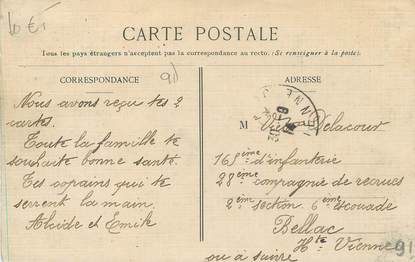 10 €
CARTE POSTALE
Tous les pays étrangers n'acceptent pas la correspondance au recto. (Se renseigner à la poste).
CORRESPONDANCE
91
ADRESSE
Nous avons reçu tes 2
cartes.
Toute la famille te
souhaite bonne santé.
Tes copains qui te
serrent la main.
Alcide et Emile
M Delacour
16 ème d'infanterie
28ème compagnie de recrues
2ème section 6ème escouade
Bellac
Hte Vienne
ou à suivre
91